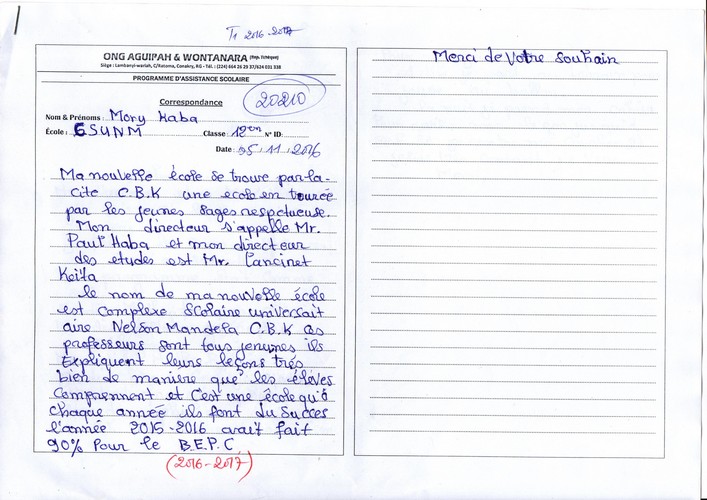 T1 2016-2017
ONG AGUIPAH & WONTANARA (Rep. Tchèque)
Siège : Lambanyi-wariah, C/Ratoma, Conakry, RG - Tél. : (224) 664 26 29 37/624 031 338
PROGRAMME D'ASSISTANCE SCOLAIRE
Correspondance
20210
Nom & Prénoms : Mory Kaba
École : GSUNM Classe : 12em N° ID:
Date : 05/11/2016
Ma nouvelle école se trouve par-la-
cite C.B.K une ecole en tourée
par les jeunes sages respctueuse.
Mon directeur s'appelle Mr.
Paul Haba et mon directeur
des etudes est Mr. Lancinet
Keita
le nom de ma nouvelle école
est complexe scolaire universait
aire Nelson Mandela C.B.K as
professeurs sont tous jenunes ils
Expliquent leurs leçons très
bien de manière que les élèves
Comprennent et C'est une école qu'à
chaque année ils font du Succes
l'année 2015-2016 avait fait
90% Pour le B.E.P.C
(2016-2017)
Merci de Votre Souhain